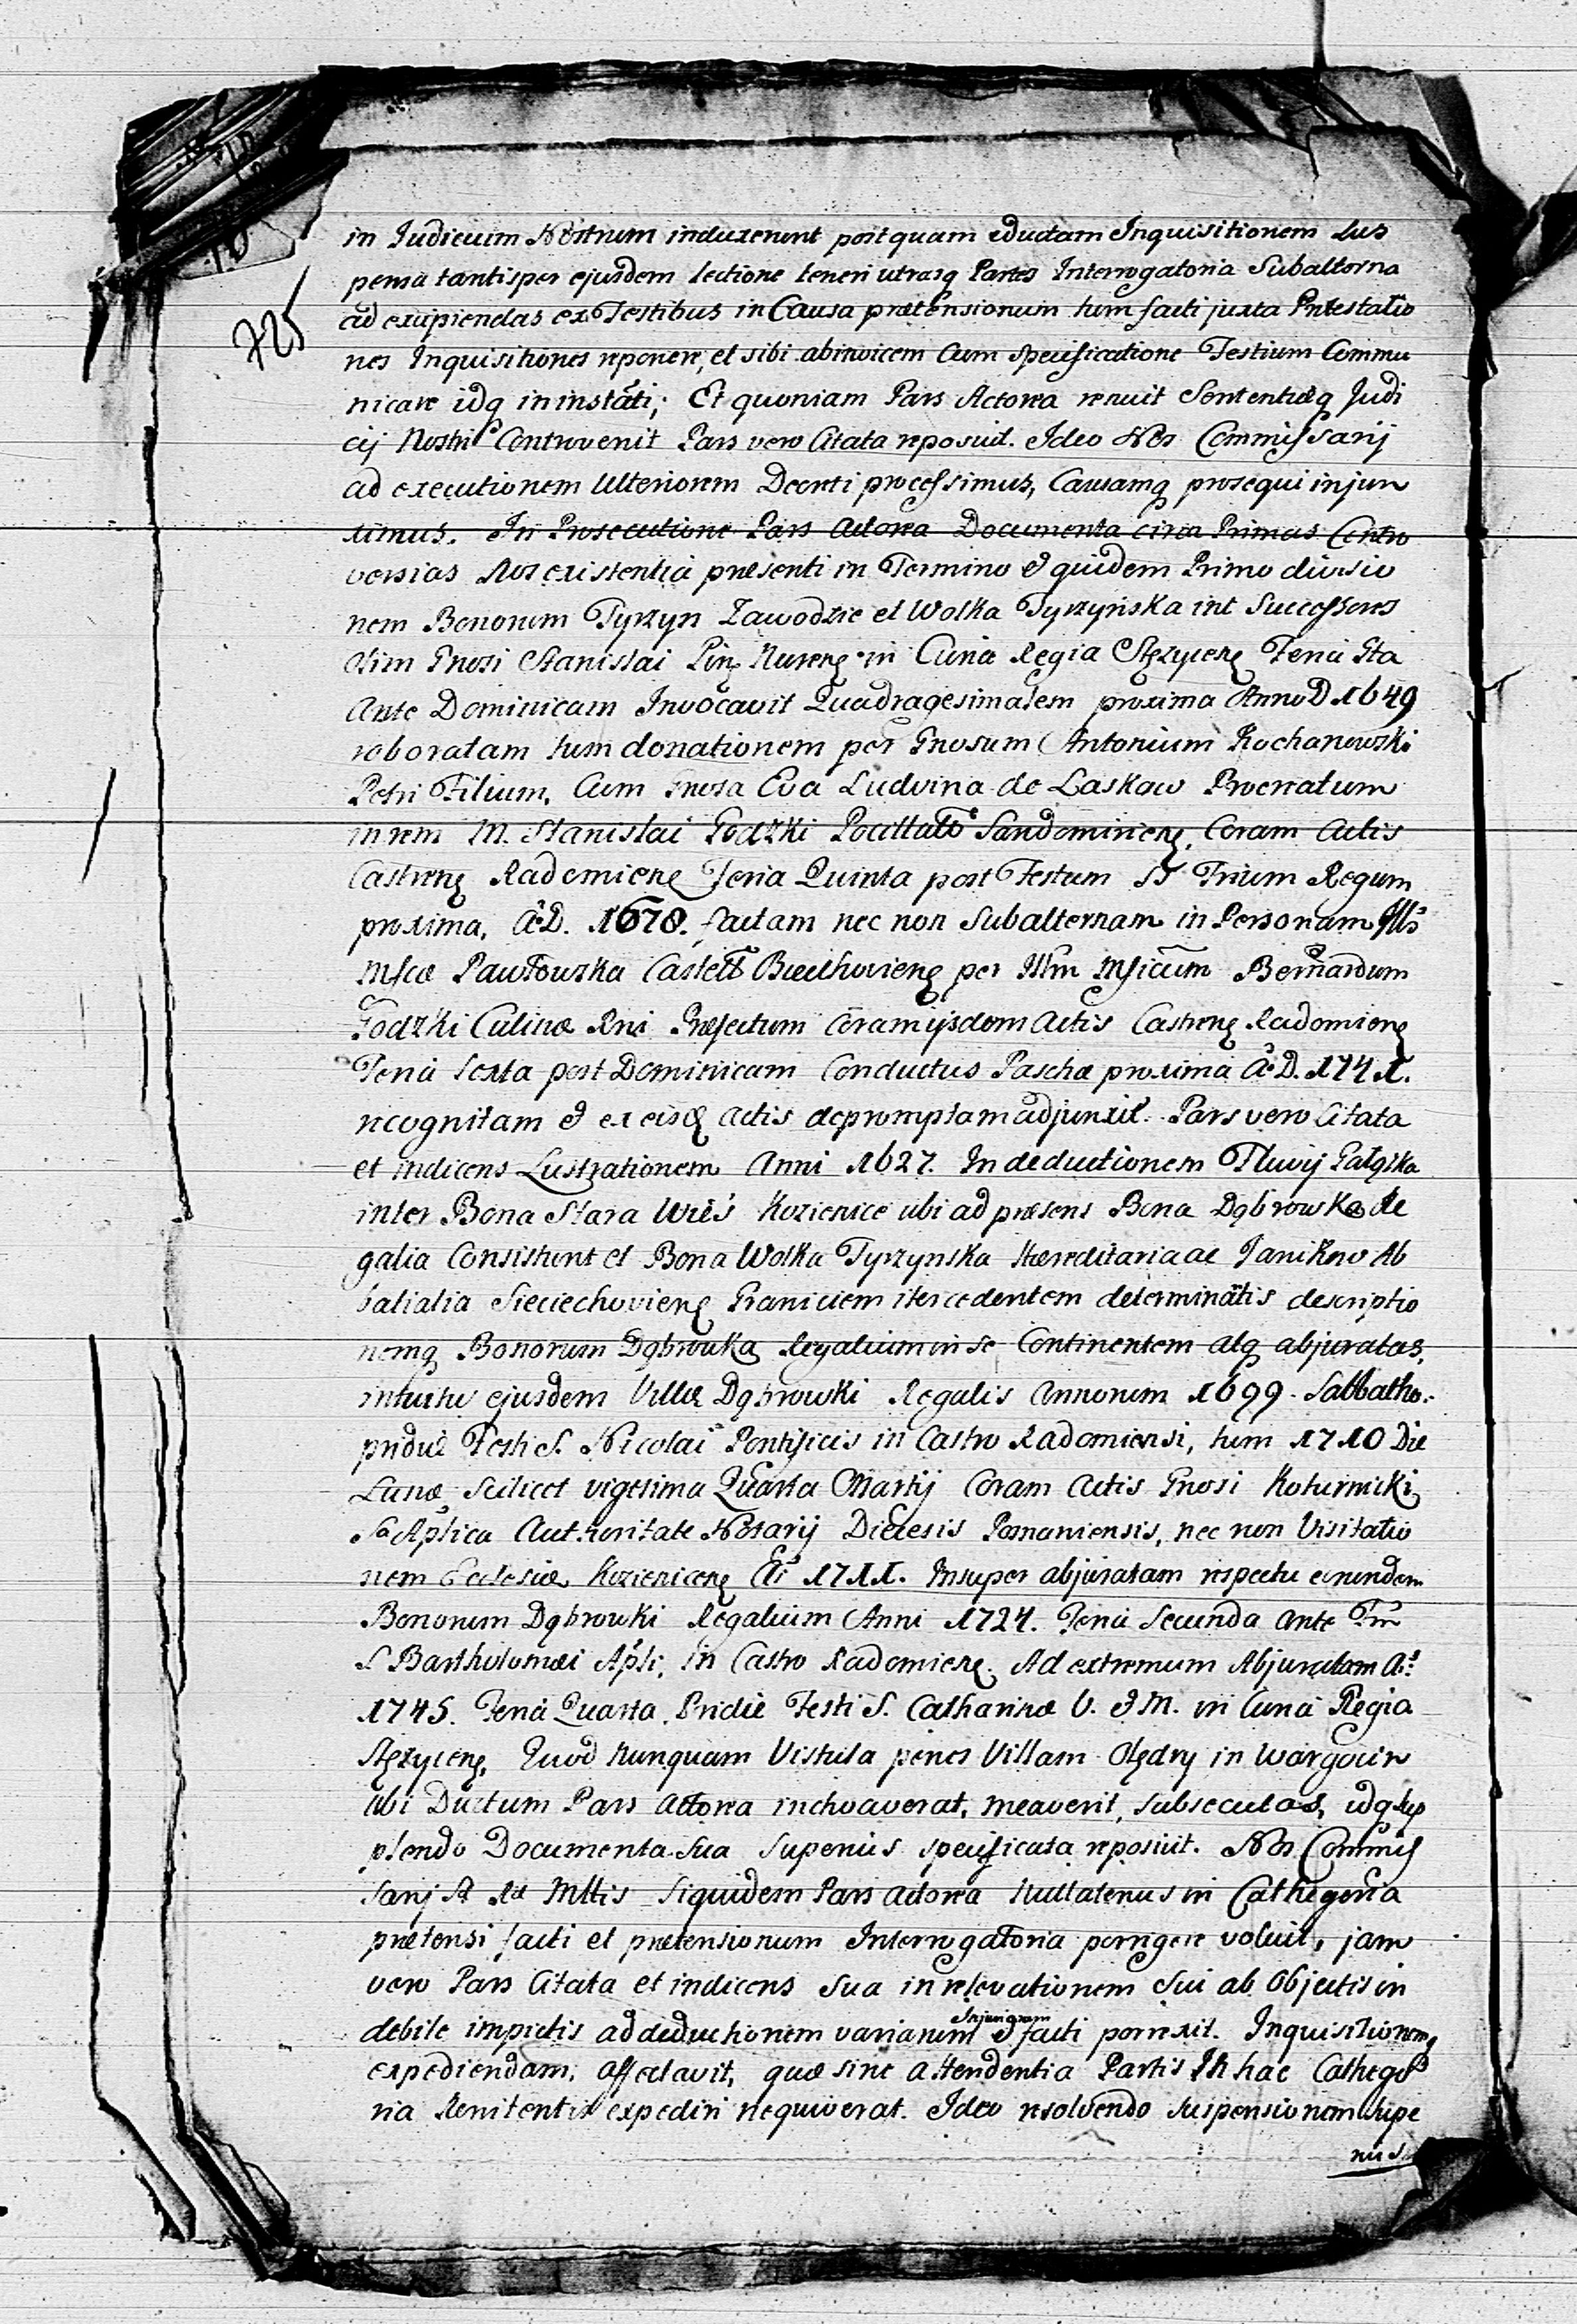 in Judicium Nostrum induxerunt postquam eductam Inquisitionem Sus
pensa tantisper ejusdem lectione teneri utrasq Partes Interrogatoria Subalterna
725
ad excipiendas ex Testibus in Causa prætensionum tum facti juxta Protestatio
nes Inquisitiones reponere, et sibi abinvicem Cum specificatione Testium Commu
nicare idq in instãti; Et quoniam Pars Actorea renuit Sententiæq Judi
cij Nostri Controvenit Pars vero Citata reposuit. Ideo Nos Commissarij
ad executionem Ulteriorem Decreti processimus, Causamq prosequi injun
ximus. In Prosecutione Pars Actorea Documenta circa Primas Contro
versias Nos existentia præsenti in Termino & quidem Primo divisio
nem Bonorum Tyrzyn Zawodzie et Wolka Tyrzyńska int Successores
olim Gnosi Stanislai in Curia Regia Stęzycen Feria
Ante Dominicam Invocavit Quadragesimalem proxima Anno D 1649
roboratam tum donationem per Gnosum Antonium Kochanowski
Petri Filium, Cum Gnosa Eva Ludvina de Laskow Procreatum
in rem M. Stanislai Godzki Sandomirien, Coram Actis
Castren Radomien Feria Quinta post Festum SS Trium Regum
proxima, A D. 1678. factam nec non Subalternam in Personam Illis
Mficæ Pawłowska Castell Biechovien per Illm Mficum Bernardum
Godzki Culinæ Rni Præfectum Coram ijsdem Actis Castren Radomien
Feria Sexta post Dominicam Conductus Paschæ proxima A D. 1741.
recognitam & ex eisd Actis depromptam adjunxit. Pars vero Citata
et indicens Lustrationem Anni 1627. In deductionem Fluvij
inter Bona Stara Wieś Kozienice ubi ad præsens Bona Dąbrowka Re
galia Consistunt et Bona Wolka Tyrzynska Hæreditaria ac Janikow Ab
batialia Sieciechovien Graniciem itercedentem determinãtis descriptio
nemq Bonorum Dąbrowka Regalium in se Continentem atq abjuratas,
intuitu ejusdem Villæ Dąbrowki Regalis Annorum 1699. Sabbatho
pridie Festi S. Nicolai Pontificis in Castro Radomiensi, tum 1710 Die
Lunæ Scilicet vigesima Quarta Martij Coram Actis Gnosi Koturnicki
Sa Aplica Authoritate Notarij Diæcesis Posnaniensis, nec non Visitatio
nem Ecclesiæ Kozienicen Ai 1711. Insuper abjuratam respectu eorundem
Bonorum Dąbrowki Regalium Anni 1724. Feria Secunda ante Ftm
S Bartholomæi Apli, in Castro Radomien. Ad extremum Abjuratam Ai
1745. Feria Quarta Pridie Festi S. Catharinæ V. & M. in Curia Regia
Stęzycen, Quod nunquam Vistula penes Villam Olędry in Wargocin
ubi Ductum Pars Actorea inchoaverat, meaverit, subsecutas, idq sup
plendo Documenta Sua Superius specificata reposuit. Nos Commis
sarij Sæ Ræ Mttis Siquidem Pars Actorea nullatenus in Cathegoria
prætensi facti et prætensionum Interrogatoria porrigere voluit, jam
vero Pars Citata et indicens Sua in relevationem Sui ab Objectis in
debite impictis ad deductionem variarum Injuriarum & facti porrexit. Inquisitionemq
expediendam, affectavit, quæ sine attendentia Partis In hac Cathego
ria Renitentis expediri nequiverat. Ideo resolvendo suspensionem supe
rius